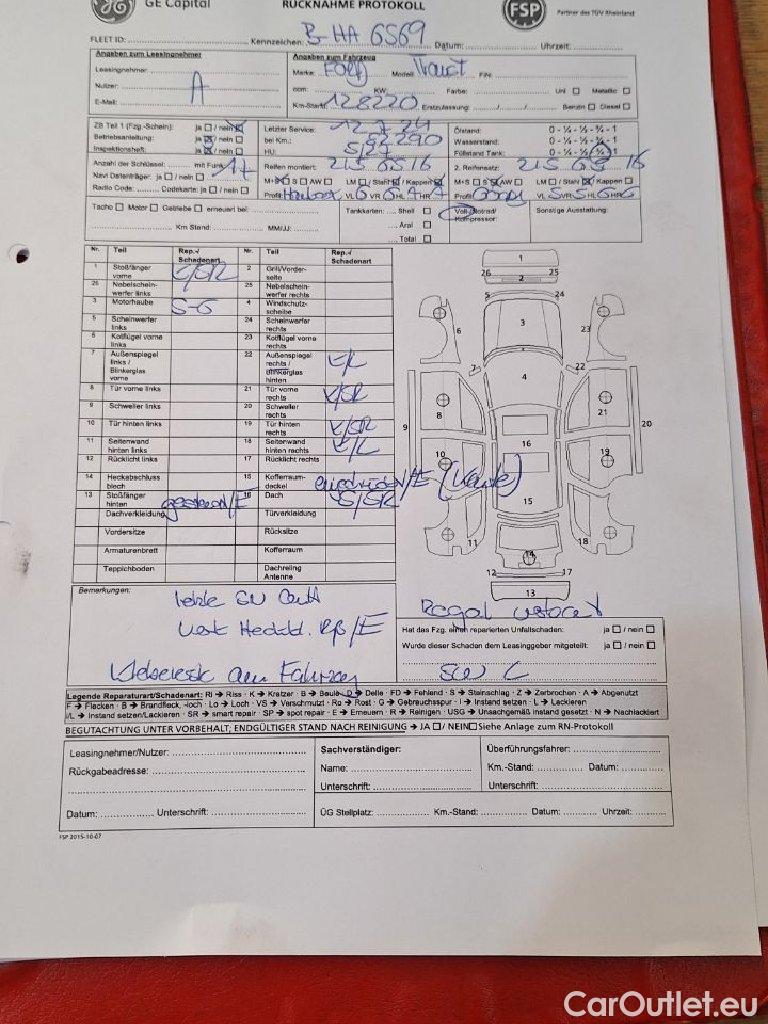 GE Capital
RÜCKNAHME PROTOKOLL
FSP
Partner des TÜV Rheinland
FLEET ID: Kennzeichen: B-HA 6569 Datum: Uhrzeit:
Angaben zum Leasingnehmer
Angaben zum Fahrzeug
Leasingnehmer: Marke: Ford Modell: FIN:
Nutzer: A ccm: KW: Farbe: Uni Metallic:
E-Mail: Km-Stand: 128220 Erstzulassung: Benzin Diesel
ZB Teil 1 (Fzg.-Schein): ja / nein Letzter Service: 12.7.24 Ölstand: 0 - ¼ - ½ - ¾ - 1
Betriebsanleitung: ja / nein bei Km.: 92290 Wasserstand: 0 - ¼ - ½ - ¾ - 1
Inspektionsheft: ja / nein HU: 5/27 Füllstand Tank: 0 - ¼ - ½ - ¾ - 1
Anzahl der Schlüssel: mit Funk: Reifen montiert: 215 65 16 2. Reifensatz: 215 65 16
Navi Datenträger: ja / nein M+S S AW LM / Stahl / Kappen M+S S AW LM / Stahl / Kappen
Radio Code: Codekarte: ja / nein Profil: VL VR HL HR Profil: VL VR HL HR
Tacho Motor Getriebe erneuert bei: Tankkarten: Shell Voll-/Notrad/ Sonstige Ausstattung:
Kompressor:
Aral
Km Stand: MM/JJ: Total
Nr. Teil Rep.-/ Schadenart Nr. Teil Rep.-/ Schadenart
1 Stoßfänger vorne E/SR 2 Grill/Vorderseite
26 Nebelscheinwerfer links 25 Nebelscheinwerfer rechts
3 Motorhaube S-G 4 Windschutzscheibe
5 Scheinwerfer links 24 Scheinwerfer rechts
6 Kotflügel vorne links 23 Kotflügel vorne rechts
7 Außenspiegel links / Blinkerglas vorne 22 Außenspiegel rechts / Blinkerglas hinten E/L
8 Tür vorne links 21 Tür vorne rechts
9 Schweller links 20 Schweller rechts
10 Tür hinten links 19 Tür hinten rechts
11 Seitenwand hinten links 18 Seitenwand hinten rechts E/L
12 Rücklicht links 17 Rücklicht rechts
14 Heckabschlussblech 15 Kofferraumdeckel
13 Stoßfänger hinten 16 Dach E/SR
Dachverkleidung Türverkleidung
Vordersitze Rücksitze
Armaturenbrett Kofferraum
Teppichboden Dachreling Antenne
1
26 25
2
5 24
3
6 23
7 22
4
8 21
9 20
16
10 19
15
11 18
14
12 17
13
Bemerkungen:
Hat das Fzg. einen reparierten Unfallschaden: ja / nein
Wurde dieser Schaden dem Leasinggeber mitgeteilt: ja / nein
am Fahrzeug
Legende Reparaturart/Schadenart: Ri → Riss · K → Kratzer · B → Beule · D → Delle · FD → Fehlend · S → Steinschlag · Z → Zerbrochen · A → Abgenutzt
F → Flecken · B → Brandfleck, -loch · Lo → Loch · VS → Verschmutzt · Ro → Rost · G → Gebrauchsspur · I → Instand setzen · L → Lackieren
I/L → Instand setzen/Lackieren · SR → smart repair · SP → spot repair · E → Erneuern · R → Reinigen · USG → Unsachgemäß instand gesetzt · N → Nachlackiert
BEGUTACHTUNG UNTER VORBEHALT; ENDGÜLTIGER STAND NACH REINIGUNG → JA / NEIN Siehe Anlage zum RN-Protokoll
Leasingnehmer/Nutzer: Sachverständiger: Überführungsfahrer:
Rückgabeadresse: Name: Km.-Stand: Datum:
Unterschrift: Unterschrift:
Datum: Unterschrift: ÜG Stellplatz: Km.-Stand: Datum: Uhrzeit:
FSP 2015-10-07
CarOutlet.eu